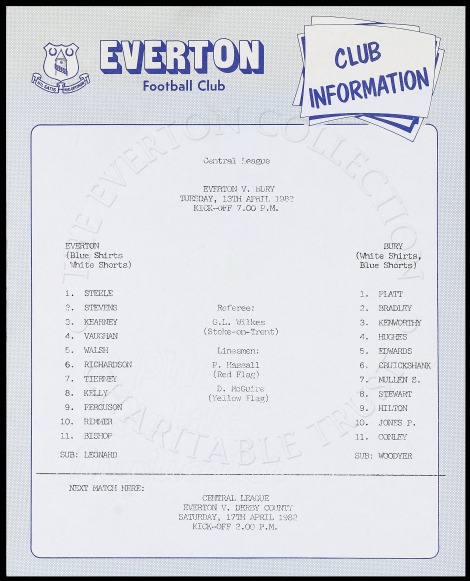 EVERTON
Football Club
CLUB
INFORMATION
NIL SATIS NISI OPTIMUM
THE EVERTON COLLECTION
CHARITABLE TRUST
Central League
EVERTON V. BURY
TUESDAY, 13TH APRIL 1982
KICK-OFF 7.00 P.M.
EVERTON
(Blue Shirts
White Shorts)
1. STEELE
2. STEVENS
3. KEARNEY
4. VAUGHAN
5. WALSH
6. RICHARDSON
7. TIERNEY
8. KELLY
9. FERGUSON
10. RIMMER
11. BISHOP
SUB: LEONARD
Referee:
G.L. Wilkes
(Stoke-on-Trent)
Linesmen:
P. Hassall
(Red Flag)
D. McGuire
(Yellow Flag)
BURY
(White Shirts,
Blue Shorts)
1. PLATT
2. BRADLEY
3. KENWORTHY
4. HUGHES
5. EDWARDS
6. CRUICKSHANK
7. MULLEN S.
8. STEWART
9. HILTON
10. JONES P.
11. CONLEY
SUB: WOODYER
NEXT MATCH HERE:
CENTRAL LEAGUE
EVERTON V. DERBY COUNTY
SATURDAY, 17TH APRIL 1982
KICK-OFF 2.00 P.M.